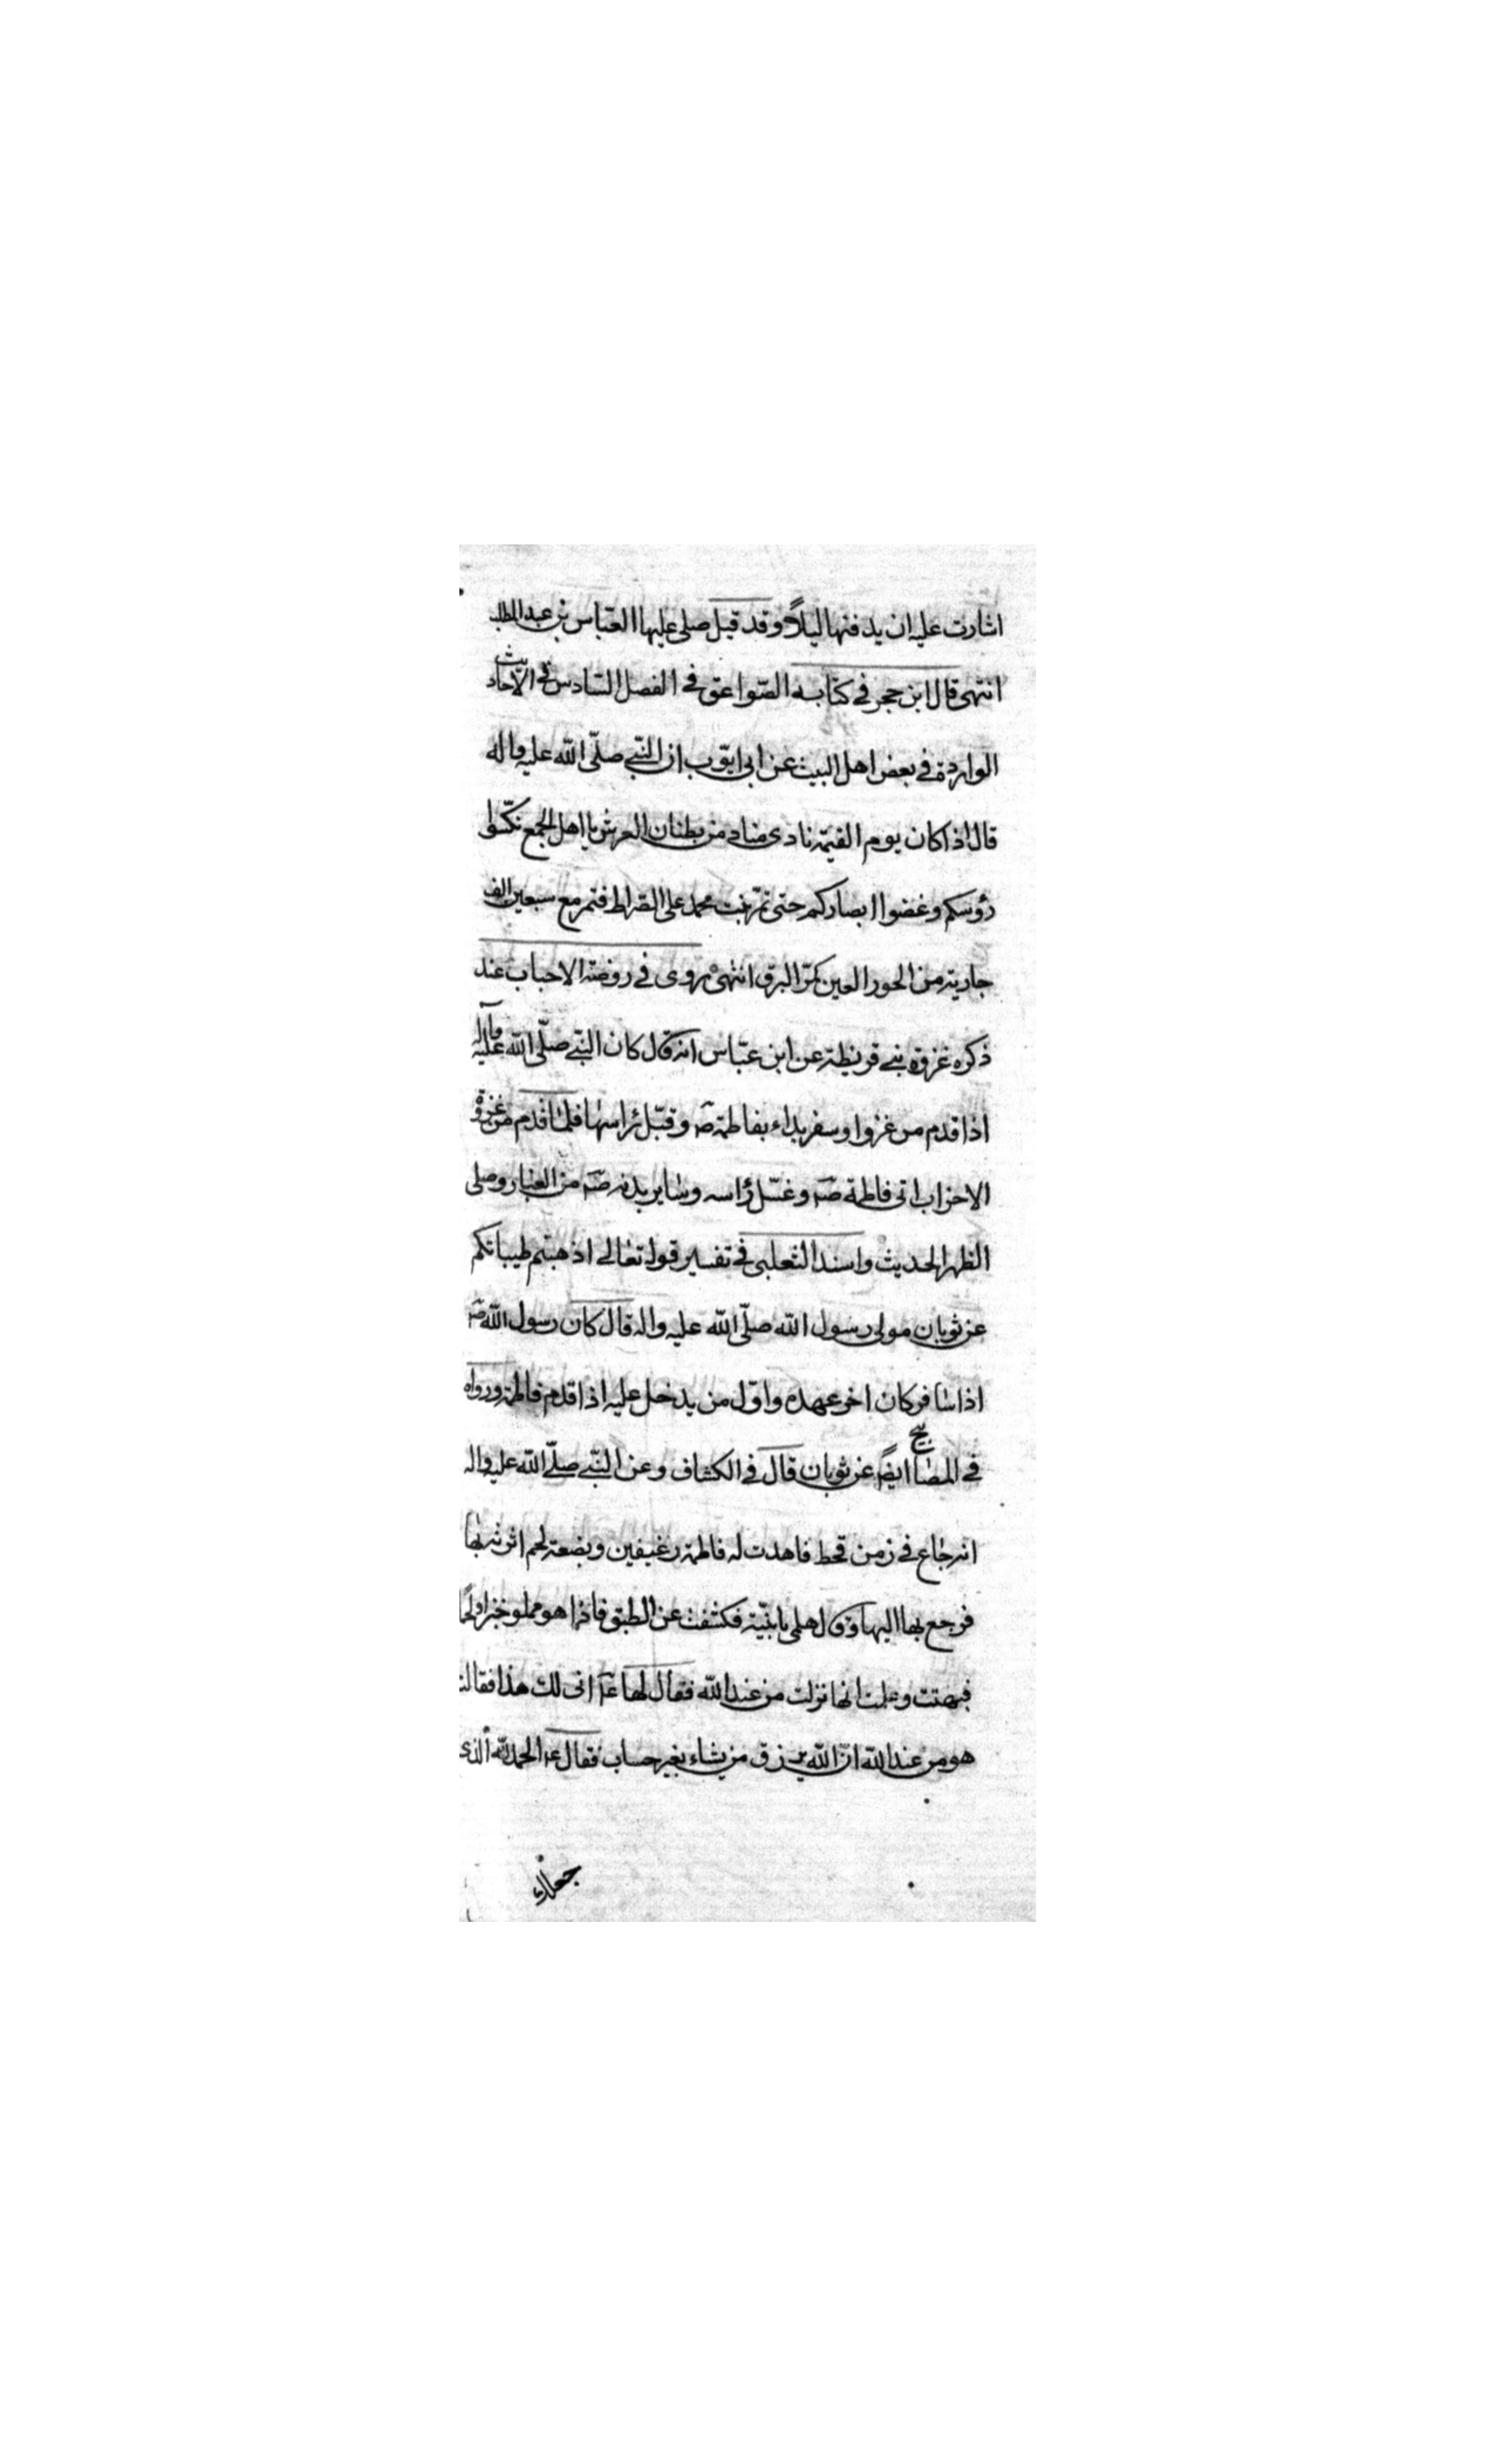 اشارت عليه ان يدفنها ليلاً وقد قيل صلى عليها العباس بن عبد المطلب
انتهى قال ابن حجر فى كتابه الصواعق فى الفصل السادس فى الاحاديث
الواردة فى بعض اهل البيت عن ابى ايوب ان النبى صلّى الله عليه واله
قال اذا كان يوم القيمة نادى مناد من بطنان العرش يا اهل الجمع نكّسوا
رؤسكم وغضوا ابصاركم حتى تمرّ بنت محمد على الصراط فتمر مع سبعين الف
جارية من الحور العين كمرّ البرق انتهى وروى فى روضة الاحباب عند
ذكره غزوة بنى قريظة عن ابن عبّاس انه قال كان النبى صلّى الله عليه وآله
اذا قدم من غزو او سفر بداء بفاطمة ص وقبّل راسها فلما قدم من غزوة
الاحزاب اتى فاطمة ص وغسّل راسه وساير بدنه ص من الغبار وصلى
الظهر الحديث واسند الثعلبى فى تفسير قوله تعالى اذهبتم طيباتكم
عن ثوبان مولى رسول الله صلّى الله عليه واله قال كان رسول الله ص
اذا سافر كان اخر عهده واوّل من يدخل عليه اذا قدم فاطمة ورواه
فى المصابيح ايضً عن ثوبان قال فى الكشاف وعن النبى صلّى الله عليه واله
انه جاع فى زمن قحط فاهدت له فاطمة رغيفين وبضعة لحم اثرته بها
فرجع بها اليها وقال هلمى يا بنيّة فكشفت عن الطبق فاذا هو مملو خبزا ولحما
فبهتت وعلمت انها نزلت من عند الله فقال لها ع انى لك هذا فقالت
هو من عند الله انّ الله يرزق من يشاء بغير حساب فقال ع الحمد لله الذى
جعلك